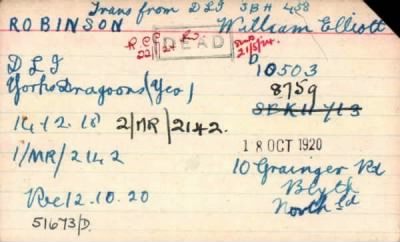 Trans from D L I S B H 458
ROBINSON William Elliott
DEAD
21/5/24
D L I 10503
Yorks Dragoons (Yeo) 8759
14.12.18 2/MR/2142.
18 OCT 1920
1/MR/2142 10 Grainger Rd
Blyth
Rec 12.10.20 North'ld
51673/D.